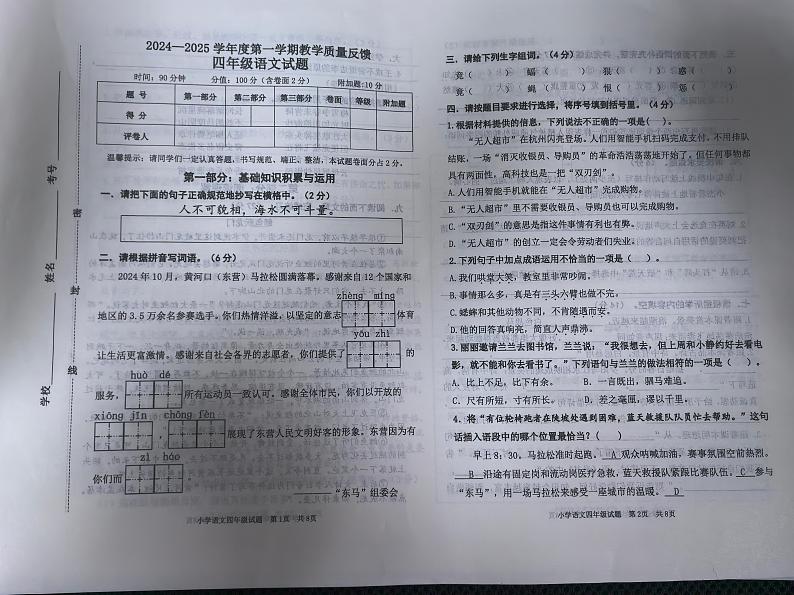 2024—2025 学年度第一学期教学质量反馈
四年级语文试题
时间：90 分钟 分值：100 分（含卷面 2 分） 附加题:10 分
题 号 第一部分 第二部分 第三部分 卷面 等级 附加题
得 分
评卷人
温馨提示：请同学们一定认真答题，书写规范、端正、整洁，本试题卷面分占 2 分。
第一部分：基础知识积累与运用
一、请把下面的句子正确规范地抄写在横格中。（2 分）
人不可貌相，海水不可斗量。
二、请根据拼音写词语。（6 分）
2024 年 10 月，黄河口（东营）马拉松圆满落幕。感谢来自 12 个国家和
zhēng míng
地区的 3.5 万余名参赛选手，你们热情洋溢，以坚定的意志 体育
yōu zhì
让生活更富激情。感谢来自社会各界的志愿者，你们提供了 的
huò dé
服务， 所有运动员一致认可。感谢全体市民，你们以开放的
xiōng jīn chōng fèn
、 展现了东营人民文明好客的形象，东营因为有
zì háo
你们而 。
“东马”组委会
小学语文四年级试题 第 1 页 共 8 页
学校
姓名
考号
密
封
线
三、请给下列生字组词。（4 分）
竞（ ） 蝠（ ） 狠（ ） 惑（ ）
竟（ ） 蝇（ ） 恨（ ） 怨（ ）
四、请按题目要求进行选择，将序号填到括号里。（4 分）
1.根据材料提供的信息，下列说法不正确的一项是（ ）。
“无人超市”在杭州闪亮登场。人们用智能手机扫码完成支付，不用排队
结账，一场“消灭收银员、导购员”的革命浩浩荡荡地开始了，但任何事物都
具有两面性，高科技也是一把“双刃剑”。
A.人们用智能手机就能在“无人超市”完成购物。
B.“无人超市”里不需要收银员、导购员也可以完成购物。
C.“双刃剑”的意思是指这件事情有利也有弊。
D.“无人超市”的创立一定会令劳动者们失业。
2.下列句子中加点成语运用不恰当的一项是（ ）。
A.我们哄堂大笑，教室里非常吵闹。
B.事情那么多，真是有三头六臂也做不完。
C.蟋蟀和其他动物不同，不肯随遇而安。
D.他的回答真响亮，简直人声鼎沸。
3.丽丽邀请兰兰去图书馆，兰兰说：“我很想去，但上周和小静约好去看电
影，就不能和你去看书了。”下列语句与兰兰的做法相符的一项是（ ）。
A. 比上不足，比下有余。 B. 一言既出，驷马难追。
C. 尺有所短，寸有所长。 D. 差之毫厘，谬以千里。
4. 将“有位轮椅跑者在陡坡处遇到困难，蓝天救援队队员忙去帮助。”这句
话插入语段中的哪个位置最恰当？（ ）
早上 8：30，马拉松准时起跑。 A 观众呐喊加油，赛事氛围空前热烈。
B 沿途有固定岗和流动岗医疗急救，蓝天救援队紧跟比赛队伍， C 参与
“东马”，用一场马拉松来感受一座城市的温暖。 D
小学语文四年级试题 第 2 页 共 8 页